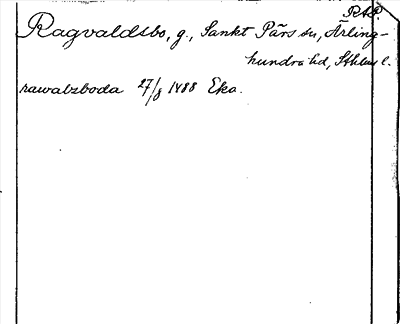 RAP.
Ragvaldsbo, g., Sankt Pärs sn, Ärling-
hundra hd, Sthlms l.
rawalzboda 27/8 1488 Eka.